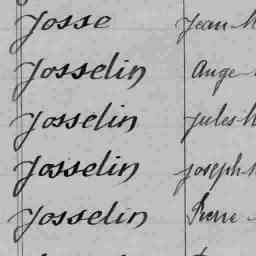 Josse Jean
Josselin Ange
Josselin Jules
Josselin Joseph
Josselin Pierre